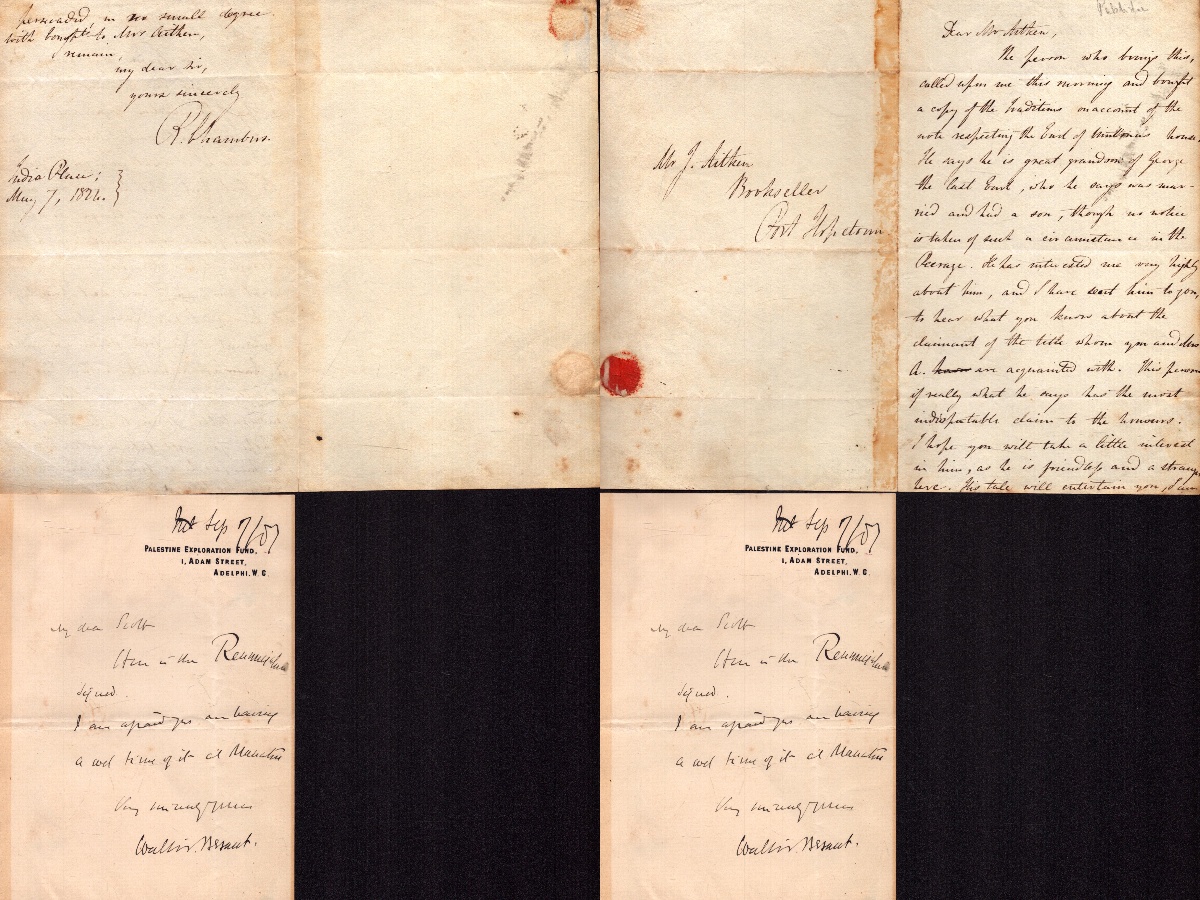 persuaded, in no small degree.
with compts to Mrs Aitken,
I remain,
my dear Sir,
yours sincerely
R. Chambers.
India Place;
May 7, 182
Mr J. Aitken
Bookseller
Port Hopetoun
Dear Mr Aitken,
The person who brings this,
called upon me this morning and bought
a copy of the Traditions on account of the
note respecting the Earl of Wintoun's house.
He says he is great grandson of George
the last Earl, who he says was mar-
ried and had a son, though no notice
is taken of such a circumstance in the
Peerage. He has interested me very highly
about him, and I have sent him to you,
to hear what you know about the
claimant of the title whom you and Mrs
A. are acquainted with. This person
if really what he says has the most
indisputable claim to the honours.
I hope you will take a little interest
in him, as he is friendless and a stranger
here. His tale will entertain you, I am
Sep 7/
PALESTINE EXPLORATION FUND,
1, ADAM STREET,
ADELPHI. W.C.
My dear Scott
Here is the
signed.
I am afraid you are having
a wet time of it at
Very sincerely yours
Walter Besant.
Sep 7/
PALESTINE EXPLORATION FUND,
1, ADAM STREET,
ADELPHI. W.C.
My dear Scott
Here is the
signed.
I am afraid you are having
a wet time of it at
Very sincerely yours
Walter Besant.